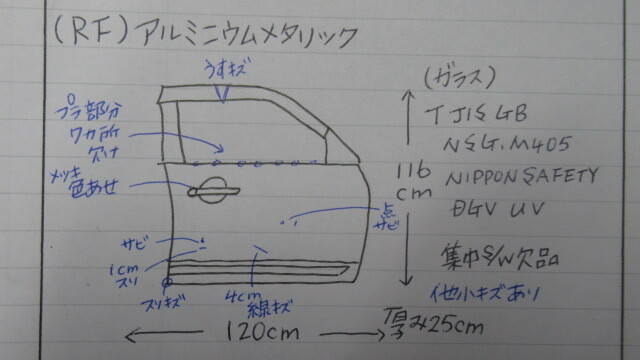 (RF)アルミニウムメタリック
うすキズ
プラ部分
7カ所
欠け
メッキ
色あせ
サビ
1cm
スリ
スリキズ
4cm
線キズ
点
サビ
120cm
116
cm
厚み25cm
(ガラス)
T JIS GB
NSG.M405
NIPPON SAFETY
DGV UV
集中S/W欠品
他小キズあり